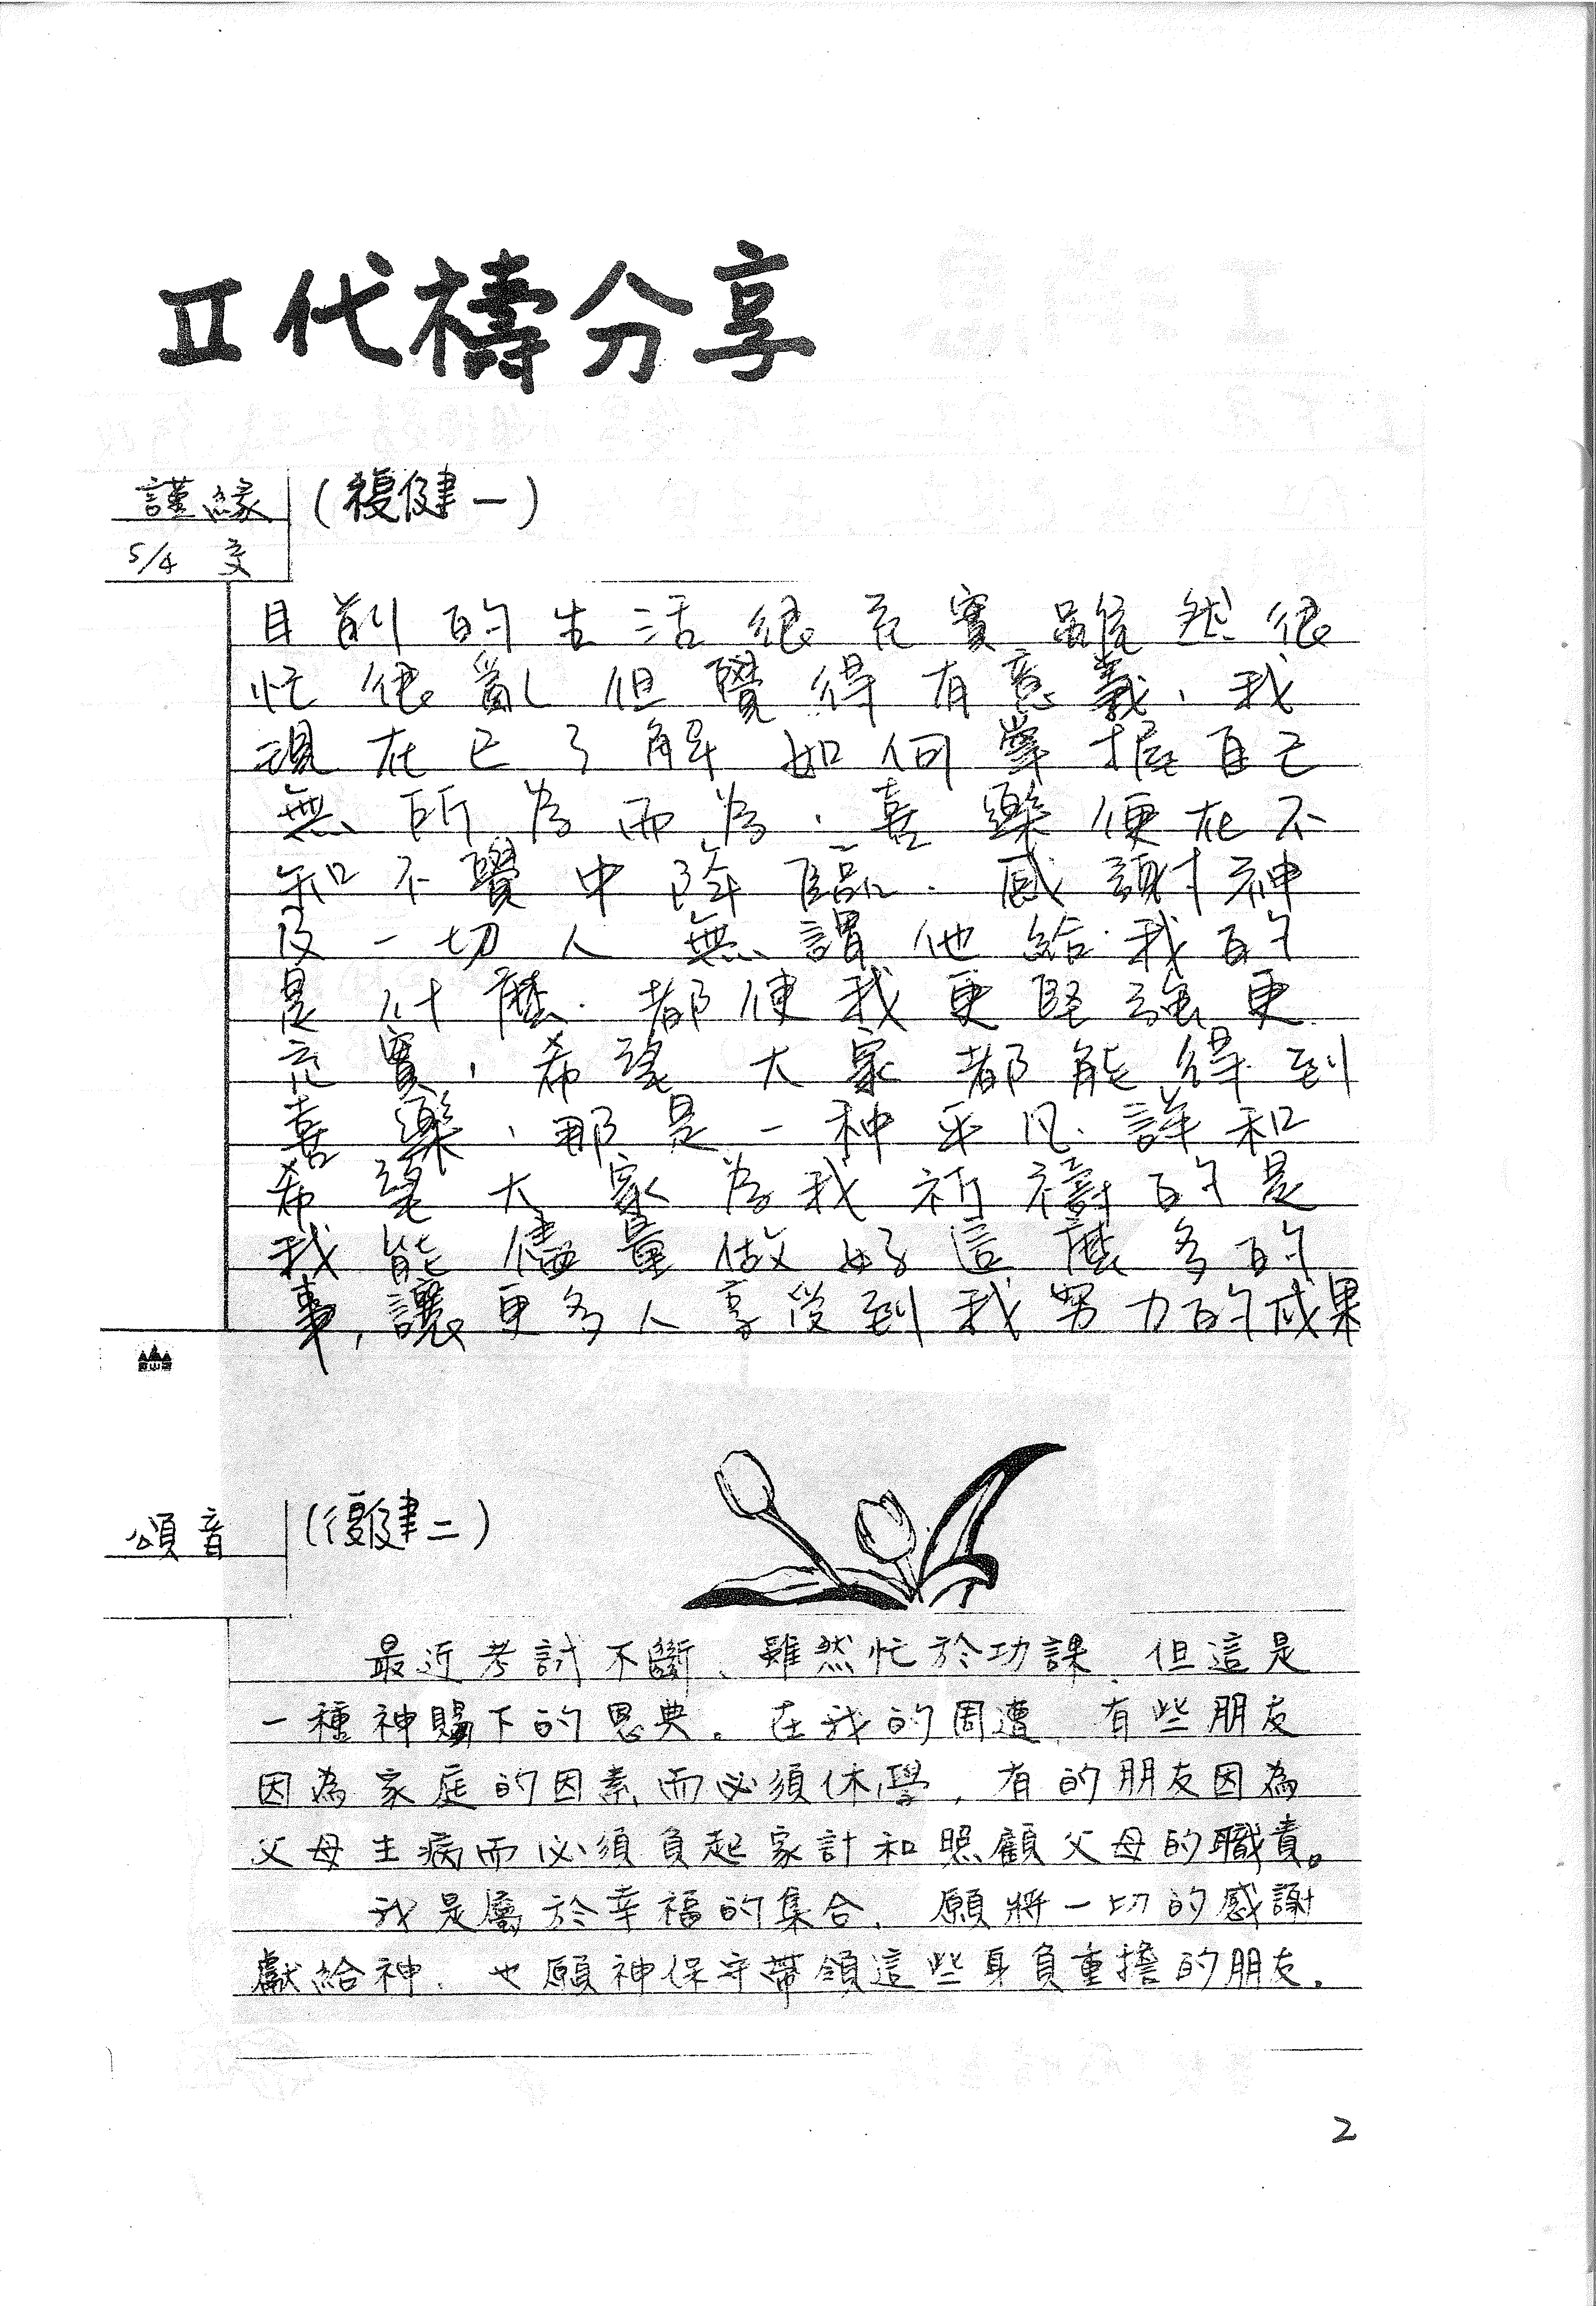 II代禱分享
謹緣 (復健一)
5/4 交
目前的生活很充實雖然很
忙很亂但覺得有意義、我
現在已了解如何掌握自己
無所為而為．喜樂便在不
知不覺中降臨．感謝神
及一切人無謂他給我的
是什麼．都使我更堅強更
充實，希望大家都能得到
喜樂、那是一種平凡．詳和
希望大家為我祈禱的是
我能儘量做好這麼多的
事，讓更多人享受到我努力的成果
頌音 (復健二)
最近考試不斷、雖然忙於功課、但這是
一種神賜下的恩典。在我的周遭，有些朋友
因為家庭的因素而必須休學，有的朋友因為
父母生病而必須負起家計和照顧父母的職責。
我是屬於幸福的集合、願將一切的感謝
獻給神．也願神保守帶領這些身負重擔的朋友．
2